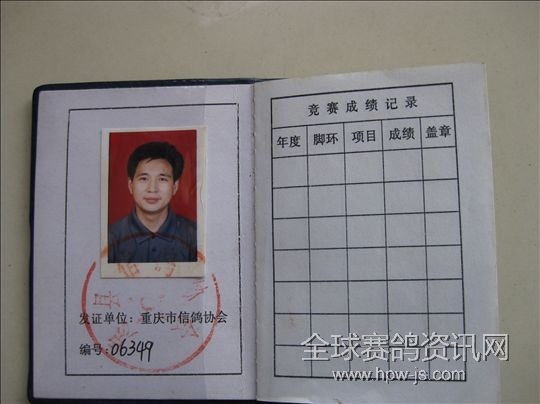 发证单位：重庆市信鸽协会
编号：06349
竞赛成绩记录
年度 脚环 项目 成绩 盖章
全球赛鸽资讯网
www.hpw-js.com